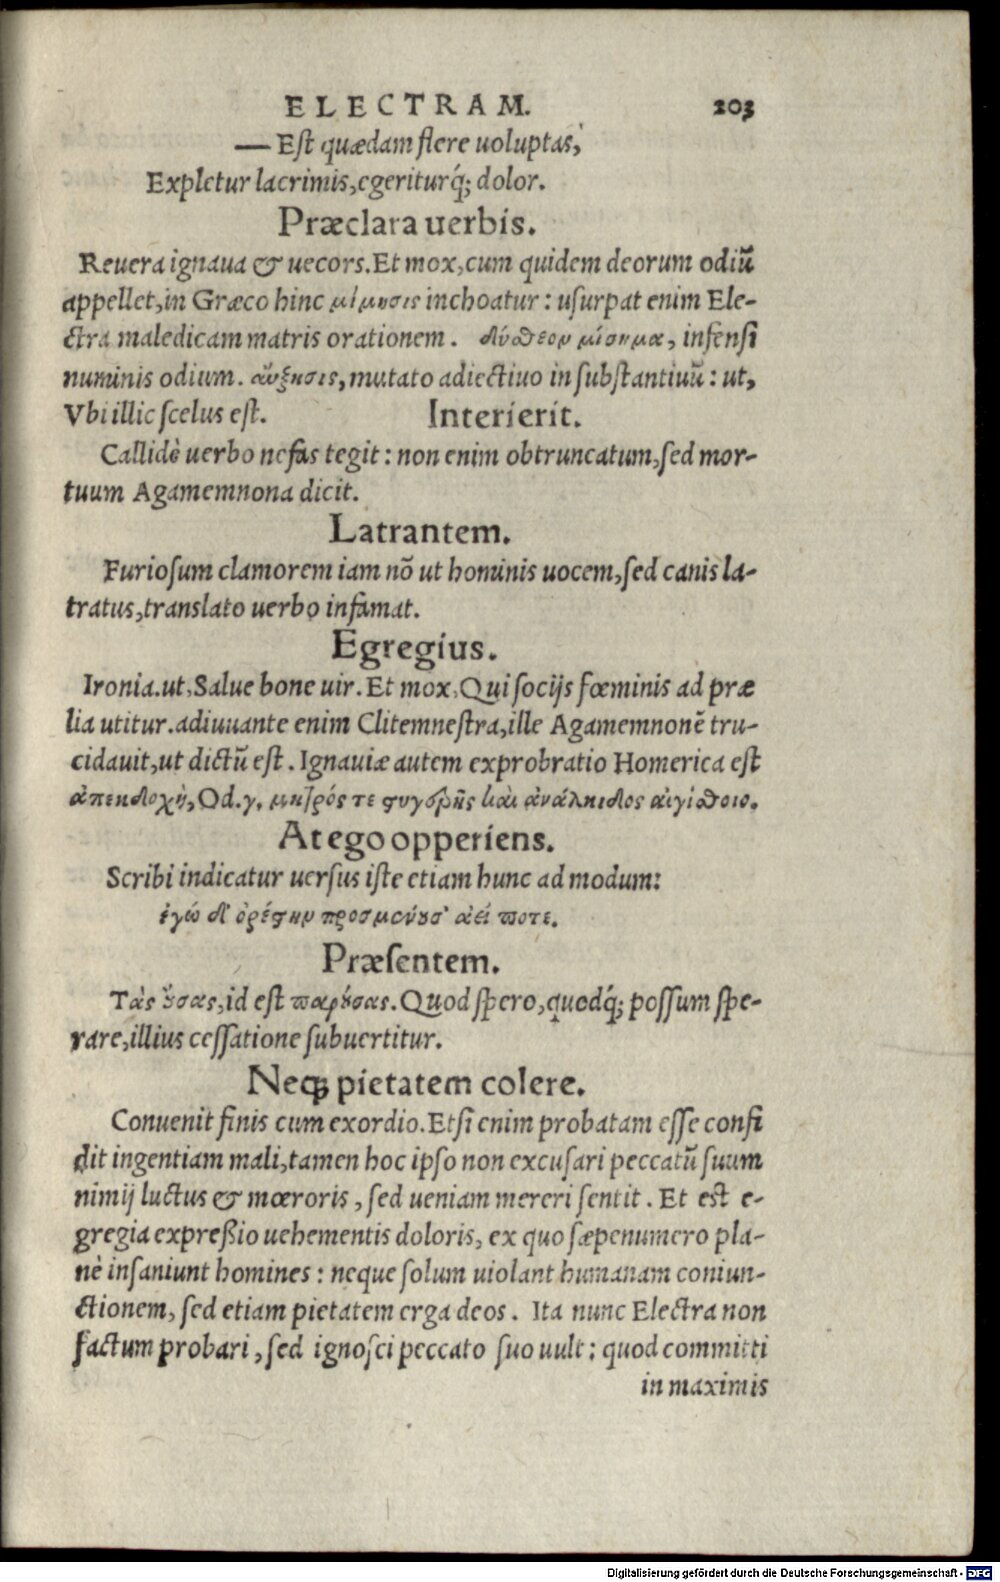 ELECTRAM. 203
— Est quædam flere uoluptas,
Expletur lacrimis, egeriturq́; dolor.
Præclara uerbis.
Reuera ignaua & uecors. Et mox, cum quidem deorum odiũ
appellet, in Græco hinc μίμησις inchoatur: usurpat enim Ele-
ctra maledicam matris orationem. δύσθεον μίσημα, infensi
numinis odium. αὔξησις, mutato adiectiuo in substantiuũ: ut,
Vbi illic scelus est. Interierit.
Callidè uerbo nefas tegit: non enim obtruncatum, sed mor-
tuum Agamemnona dicit.
Latrantem.
Furiosum clamorem iam nõ ut hominis uocem, sed canis la-
tratus, translato uerbo infamat.
Egregius.
Ironia. ut, Salue bone uir. Et mox, Qui socijs fœminis ad præ
lia utitur. adiuuante enim Clitemnestra, ille Agamemnonẽ tru-
cidauit, ut dictũ est. Ignauiæ autem exprobratio Homerica est
ἀπεκδοχὴ, Od. γ. μητρός τε στυγερῆς καὶ ἀνάλκιδος αἰγίσθοιο.
At ego opperiens.
Scribi indicatur uersus iste etiam hunc ad modum:
ἐγὼ δ' ὀρέστην προσμένουσ' ἀεί ποτε.
Præsentem.
Τὰς οὔσας, id est παρούσας. Quod spero, quodq́; possum spe-
rare, illius cessatione subuertitur.
Neq; pietatem colere.
Conuenit finis cum exordio. Etsi enim probatam esse confi
dit ingentiam mali, tamen hoc ipso non excusari peccatũ suum
nimij luctus & mœroris, sed ueniam mereri sentit. Et est e-
gregia expreßio uehementis doloris, ex quo sæpenumero pla-
nè insaniunt homines: neque solum uiolant humanam coniun-
ctionem, sed etiam pietatem erga deos. Ita nunc Electra non
factum probari, sed ignosci peccato suo uult: quod committi
in maximis
Digitalisierung gefördert durch die Deutsche Forschungsgemeinschaft - DFG